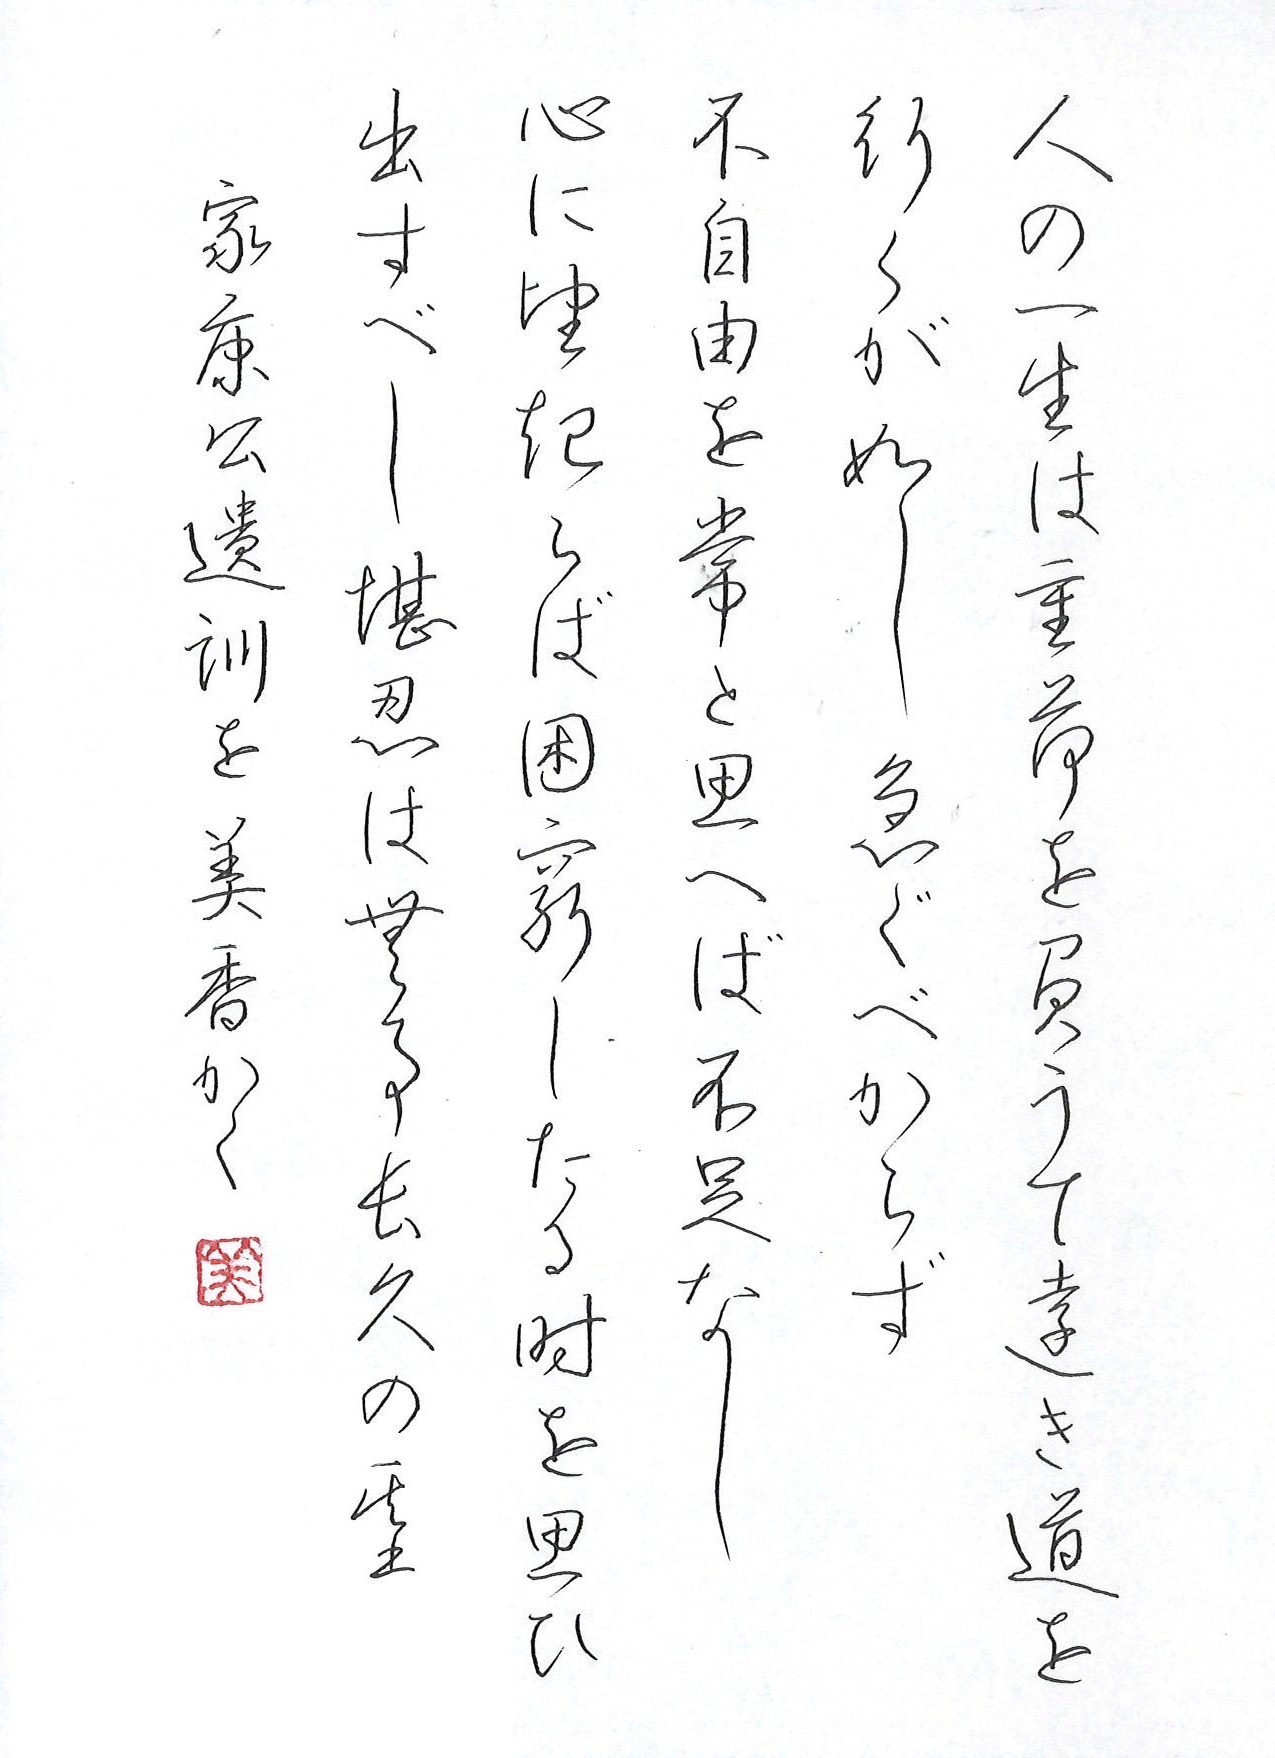 人の一生は重荷を負うて遠き道を
行くが如し 急ぐべからず
不自由を常と思へば不足なし
心に望起らば困窮したる時を思ひ
出すべし堪忍は無事長久の基
家康公遺訓を美香かく
美